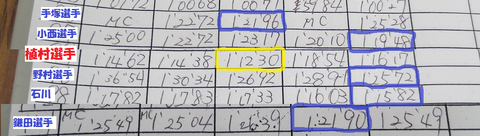 1'00"7 0068 007 35"84 1'00"7
手塚選手 MC 1'22"72 1'21"96 MC 1'25"28
小西選手 1'25"00 1'22"72 1'23"17 1'20"10 1'19"48
植村選手 1'14"62 1'14"38 1'12"30 1'18"54 1'16"17
野村選手 1'36"54 1'30"34 1'26"92 1'28"91 1'25"72
石川 1'17"83 1'17"83 1'17"33 1'16"03 1'15"82
鎌田選手 MC 1'25"49 MC 1'25"04 1'26"39 1'21"90 1'25"49